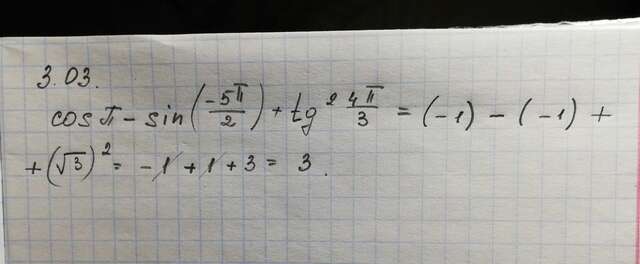 3.03.
cos π - sin(-5π/2) + tg² 4π/3 = (-1) - (-1) +
+ (√3)² = -1 + 1 + 3 = 3.